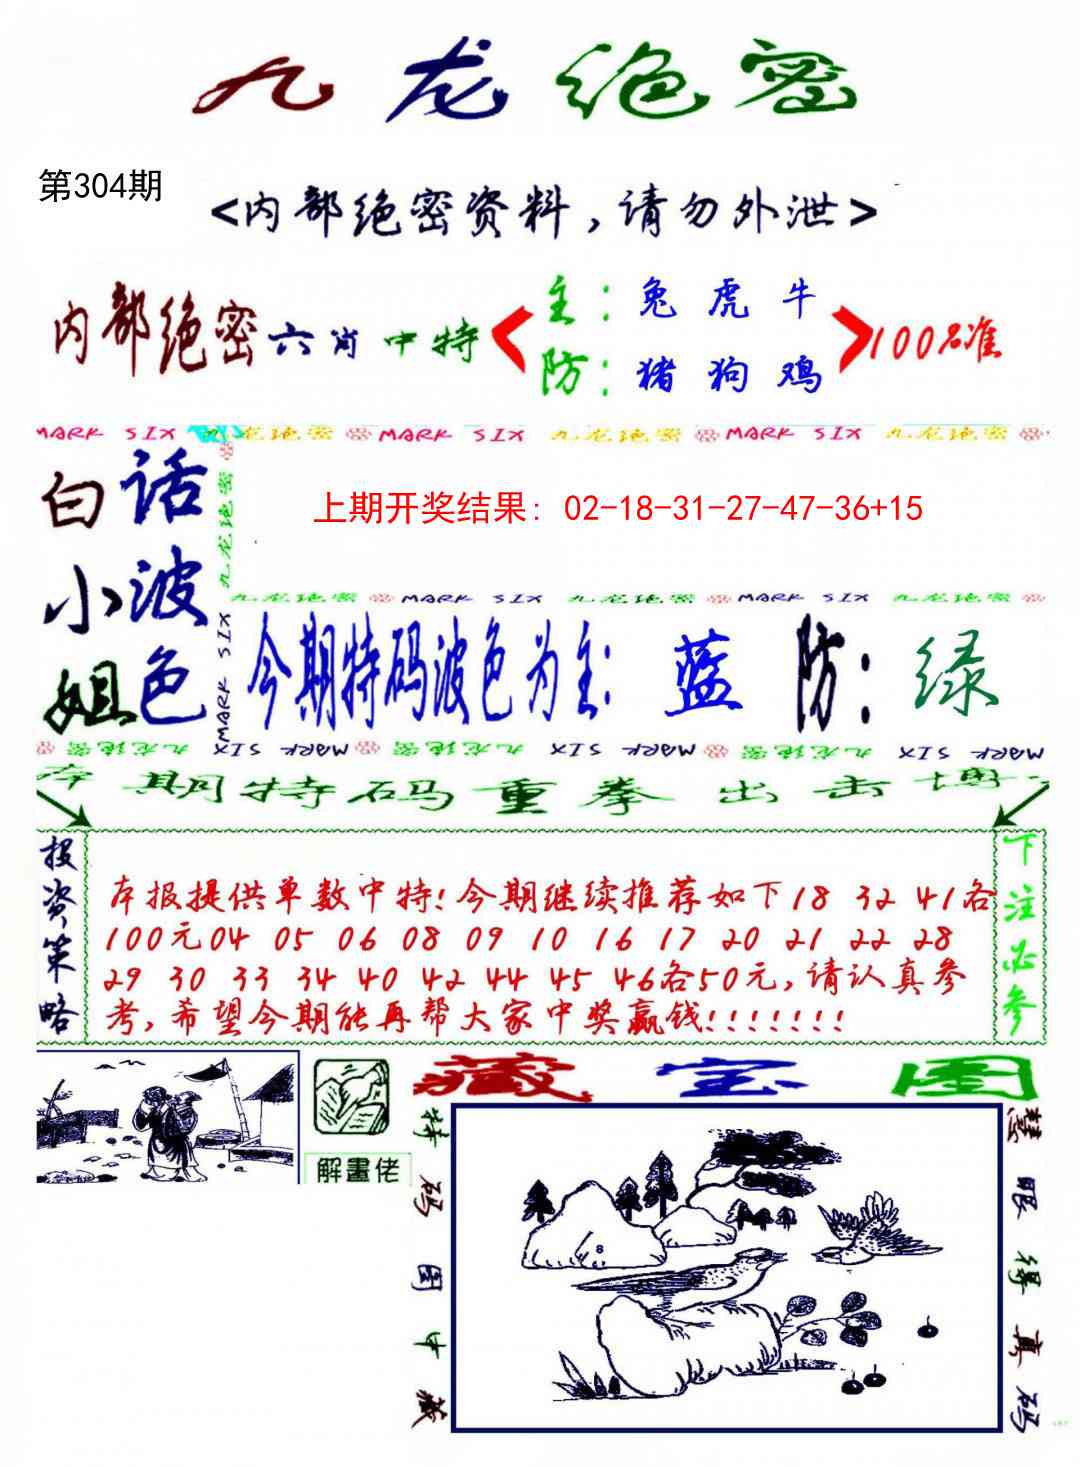 九龙绝密
第304期
<内部绝密资料,请勿外泄>
内部绝密六肖中特
主:兔 虎 牛
防:猪 狗 鸡
100%准
MARK SIX 九龙绝密 MARK SIX 九龙绝密 MARK SIX 九龙绝密
白小姐
话波色
九龙绝密
MARK SIX
上期开奖结果: 02-18-31-27-47-36+15
九龙绝密 MARK SIX 九龙绝密 MARK SIX 九龙绝密
今期特码波色为主:蓝 防:绿
九龙绝密 MARK SIX 九龙绝密 MARK SIX 九龙绝密 MARK SIX
本期特码重拳出击博
投资策略
本报提供单数中特!今期继续推荐如下18 32 41各
100元04 05 06 08 09 10 16 17 20 21 22 28
29 30 33 34 40 42 44 45 46各50元,请认真参
考,希望今期能再帮大家中奖赢钱!!!!!!!
下注必参
解畫佬
藏宝图
特码图中藏
8
慧眼得真码